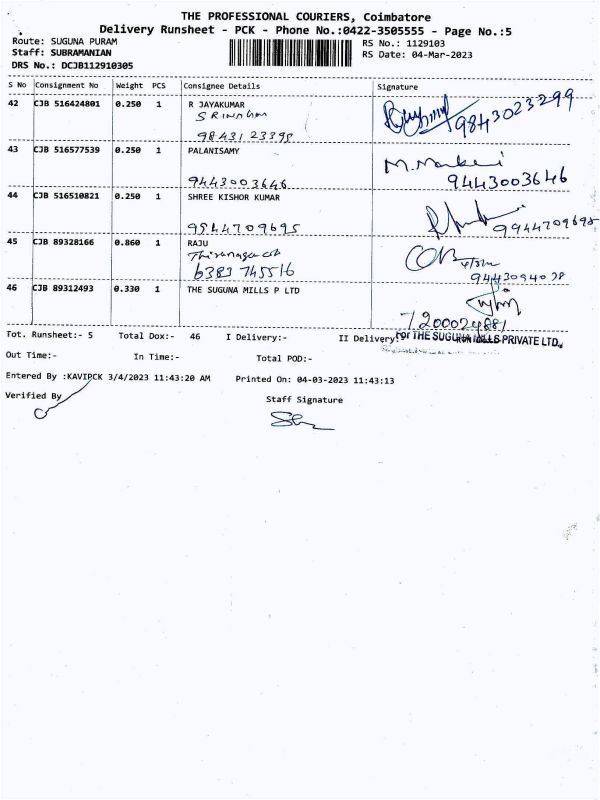 THE PROFESSIONAL COURIERS, Coimbatore
Delivery Runsheet - PCK - Phone No.:0422-3505555 - Page No.:5
Route: SUGUNA PURAM
RS No.: 1129103
Staff: SUBRAMANIAN
RS Date: 04-Mar-2023
DRS No.: DCJB112910305
S No Consignment No Weight PCS Consignee Details Signature
42 CJB 516424801 0.250 1 R JAYAKUMAR
98431 23399 9843023299
43 CJB 516577539 0.250 1 PALANISAMY
9443003646 9443003646
44 CJB 516510821 0.250 1 SHREE KISHOR KUMAR
9944709695 9944709695
45 CJB 89328166 0.860 1 RAJU
6383 745516 9443094078
46 CJB 89312493 0.330 1 THE SUGUNA MILLS P LTD
7200024881
Tot. Runsheet:- 5 Total Dox:- 46 I Delivery:- II Delivery:
For THE SUGUNA MILLS PRIVATE LTD.
Out Time:- In Time:- Total POD:-
Entered By :KAVIPCK 3/4/2023 11:43:20 AM Printed On: 04-03-2023 11:43:13
Verified By Staff Signature